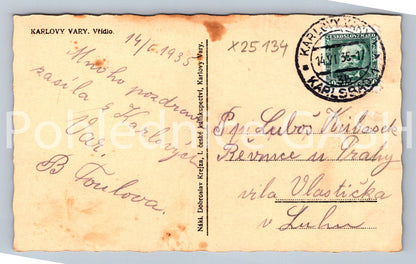 KARLOVY VARY. Vřídlo.
14/6.1935
Mnoho pozdravů
zasílá z Karlových
Var.
B Foulova.
Nákl. Dobroslav Krejza, I. české knihkupectví, Karlovy Vary.
X25134
KARLOVY VARY
14.VI.35.-17
KARLSBAD
ČESKOSLOVENSKO
P. p. Luboš
Řevnice u Prahy
vila Vlastička
v Luhu
Pohlednice